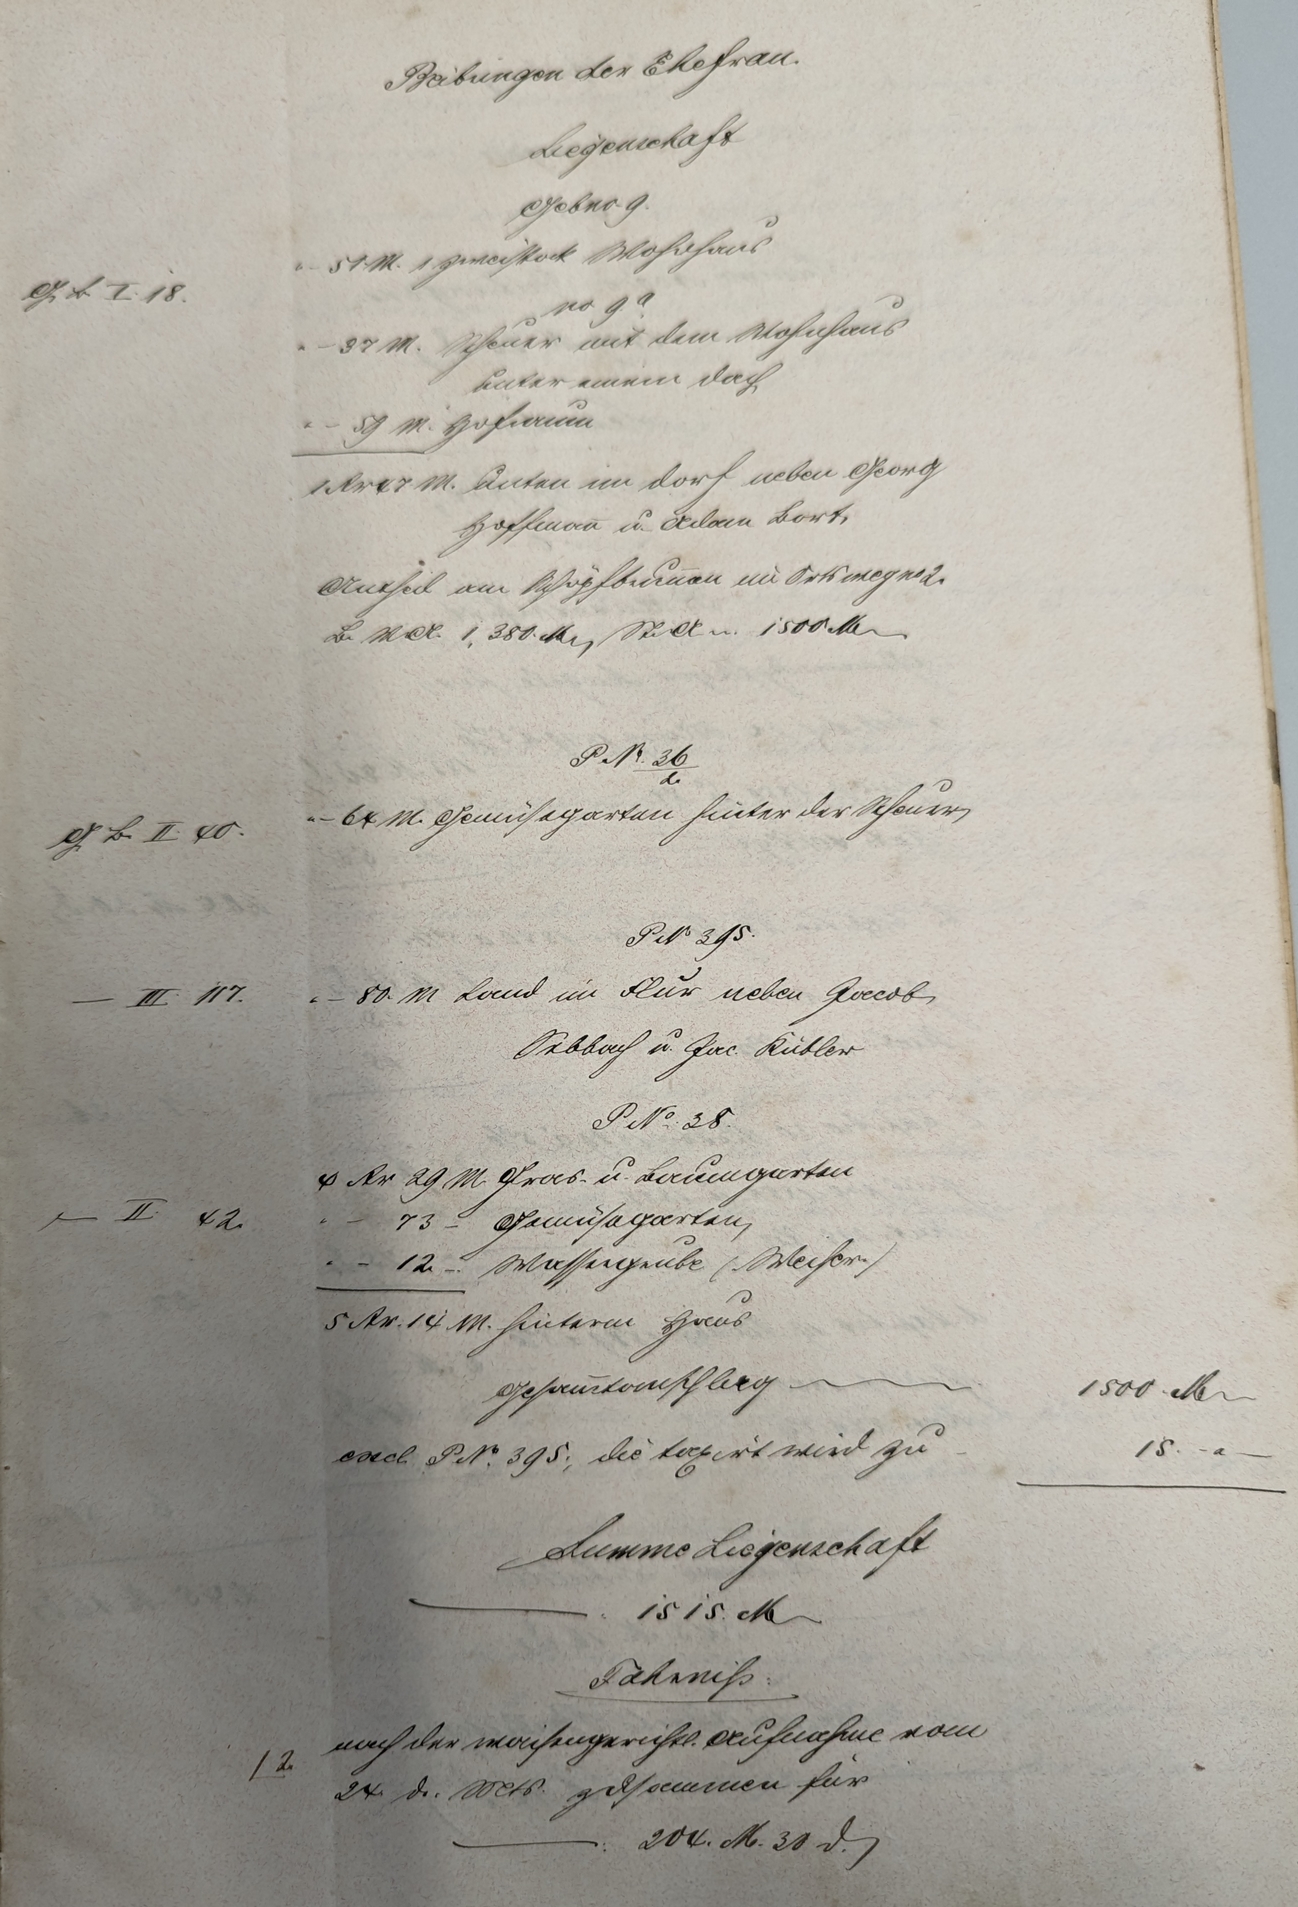 Beibringen der Ehefrau.
Liegenschaft
Gebno 9.
" - 51 M. 1 zweistock Wohnhaus
G. B. I. 18.
no 9a
" - 37 M. Scheuer mit dem Wohnhaus
unter einem Dach
" - 59 M. Hofraum
1 Ar 47 M. Unten im Dorf neben Georg
Hoffmann u. Adam Bort,
Antheil am Schöpfbrunnen im Ortsweg no 2.
B. V. A. 1,380. M., St. A. 1500 M
P. No. 36/2.
" - 64 M. Gemüsegarten hinter der Scheuer,
G. B. II. 40.
P No 395.
— III. 117. " - 80. M Land im Flur neben Jacob
Sebbach u. Jac. Kübler
P. No. 38.
4 Ar 29 M. Gras- u. Baumgarten
— II. 42. " - 73 - Gemüsegarten,
" - 12 -. Wassergrube (Weiher.)
5 Ar. 14 M. hinterm Haus
Gesammtanschlag 1500 M
excl. P. No. 395., die taxirt wird zu 15. -"-
Summe Liegenschaft
1515. M
Fahrniß.
nach der waisengerichtl. Aufnahme vom
12. 24. d. Mts. zusammen für
204. M. 30 d.